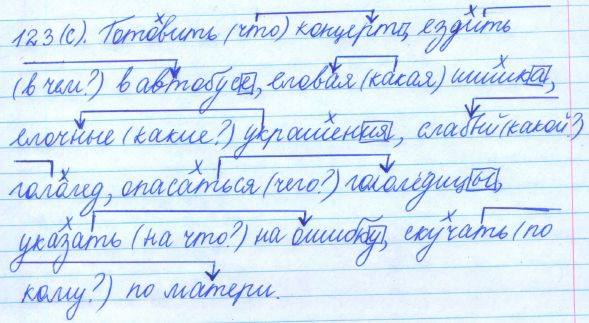 123(с). Готовить (что) концерт, ездить
(в чём?) в автобусе, еловая (какая) шишка,
елочные (какие?) украшения, слабый (какой?)
гололед, опасаться (чего?) гололедицы,
указать (на что?) на ошибку, скучать (по
кому?) по матери.